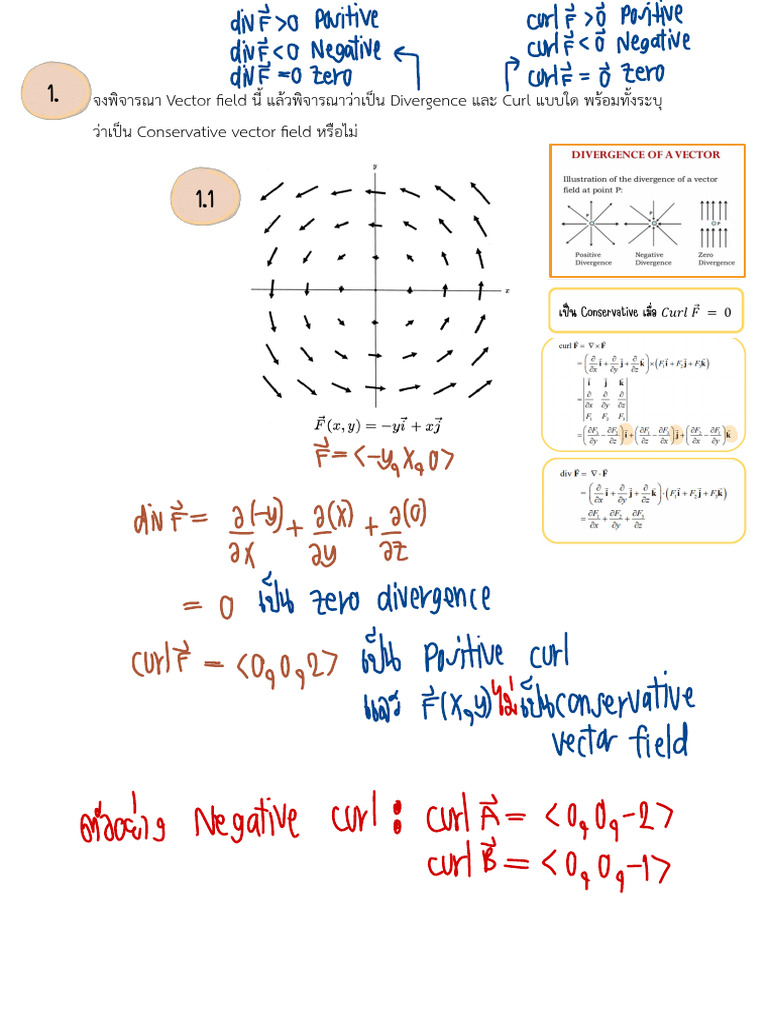 div F⃗ > 0 Positive
div F⃗ < 0 Negative
div F⃗ = 0 Zero
curl F⃗ > 0⃗ Positive
curl F⃗ < 0⃗ Negative
curl F⃗ = 0⃗ Zero
1.
จงพิจารณา Vector field นี้ แล้วพิจารณาว่าเป็น Divergence และ Curl แบบใด พร้อมทั้งระบุ
ว่าเป็น Conservative vector field หรือไม่
1.1
y
x
F⃗(x, y) = −yi⃗ + xj⃗
DIVERGENCE OF A VECTOR
Illustration of the divergence of a vector
field at point P:
P
P
P
Positive Divergence
Negative Divergence
Zero Divergence
เป็น Conservative เมื่อ Curl F⃗ = 0
curl F⃗ = ∇ × F⃗
= (∂/∂x i⃗ + ∂/∂y j⃗ + ∂/∂z k⃗) × (F₁i⃗ + F₂j⃗ + F₃k⃗)
= | i⃗ j⃗ k⃗ |
| ∂/∂x ∂/∂y ∂/∂z |
| F₁ F₂ F₃ |
= (∂F₃/∂y − ∂F₂/∂z) i⃗ + (∂F₁/∂z − ∂F₃/∂x) j⃗ + (∂F₂/∂x − ∂F₁/∂y) k⃗
div F⃗ = ∇ · F⃗
= (∂/∂x i⃗ + ∂/∂y j⃗ + ∂/∂z k⃗) · (F₁i⃗ + F₂j⃗ + F₃k⃗)
= ∂F₁/∂x + ∂F₂/∂y + ∂F₃/∂z
F⃗ = <−y, x, 0>
div F⃗ = ∂(−y)/∂x + ∂(x)/∂y + ∂(0)/∂z
= 0 เป็น zero divergence
curl F⃗ = <0, 0, 2> เป็น Positive curl
และ F⃗(x, y) ไม่เป็น conservative
vector field
ตัวอย่าง Negative curl : curl A⃗ = <0, 0, −2>
curl B⃗ = <0, 0, −1>